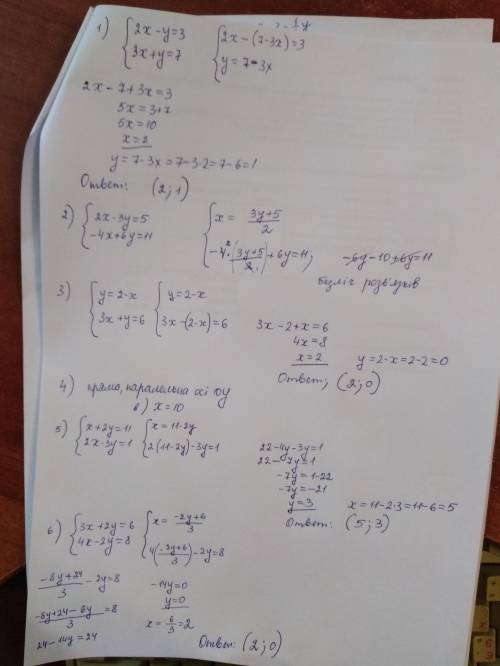 1) { 2x - y = 3 { 2x - (7 - 3x) = 3
3x + y = 7 y = 7 - 3x
2x - 7 + 3x = 3
5x = 3 + 7
5x = 10
x = 2
y = 7 - 3x = 7 - 3·2 = 7 - 6 = 1
Ответ: (2; 1)
2) { 2x - 3y = 5 { x = (3y + 5)/2
-4x + 6y = 11 -4·(3y + 5)/2 + 6y = 11; -6y - 10 + 6y = 11
безліч розв'язків
3) { y = 2 - x { y = 2 - x
3x + y = 6 3x - (2 - x) = 6
3x - 2 + x = 6
4x = 8
x = 2 y = 2 - x = 2 - 2 = 0
Ответ; (2; 0)
4) пряма, паралельна осі OY
в) x = 10
5) { x + 2y = 11 { x = 11 - 2y
2x - 3y = 1 2(11 - 2y) - 3y = 1
22 - 4y - 3y = 1
22 - 7y = 1
-7y = 1 - 22
-7y = -21
y = 3 x = 11 - 2·3 = 11 - 6 = 5
Ответ: (5; 3)
6) { 3x + 2y = 6 { x = (-2y + 6)/3
4x - 2y = 8 4((-2y + 6)/3) - 2y = 8
(-8y + 24)/3 - 2y = 8
(-8y + 24 - 6y)/3 = 8
24 - 14y = 24
-14y = 0
y = 0
x = 6/3 = 2
Ответ: (2; 0)